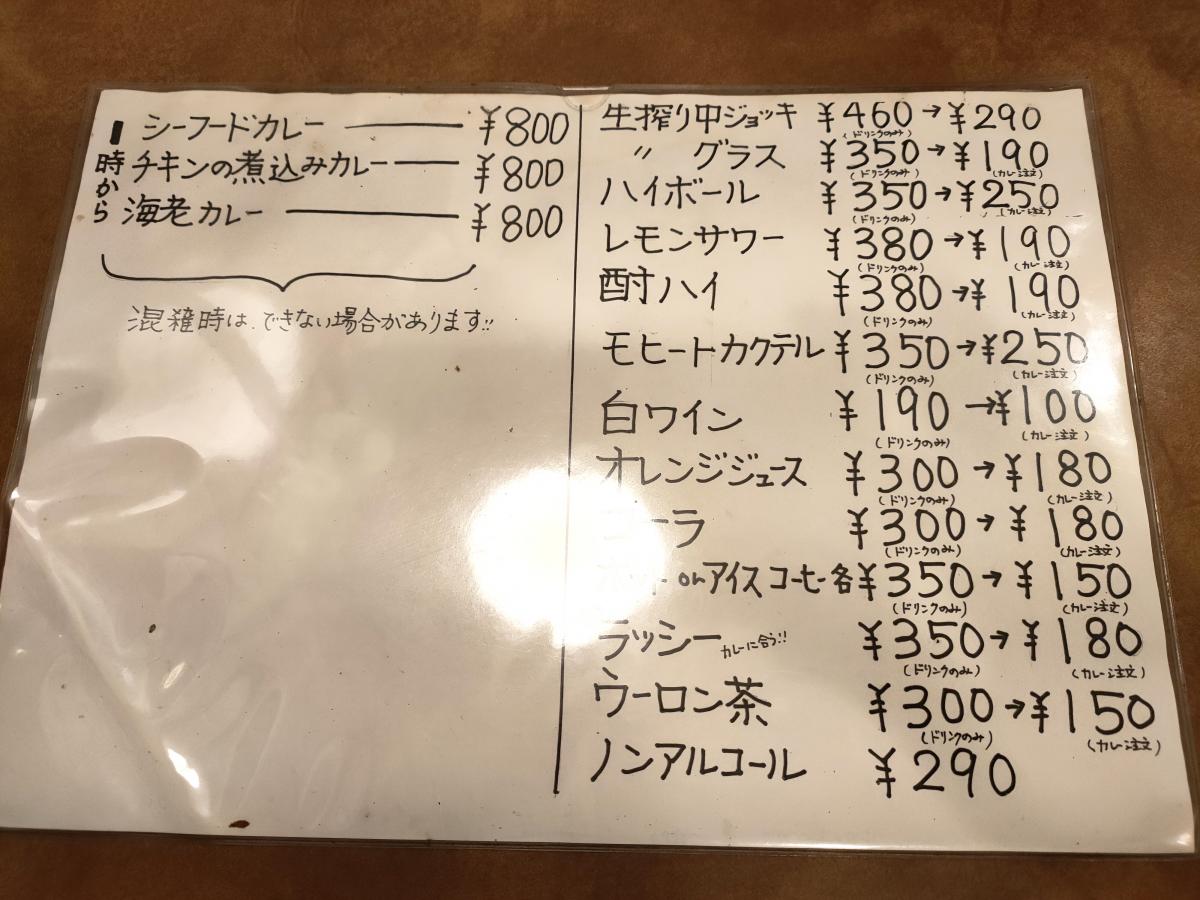 1時から
シーフードカレー ¥800
チキンの煮込みカレー ¥800
海老カレー ¥800
混雑時は、できない場合があります!!
生搾り中ジョッキ ¥460→¥290
(ドリンクのみ)
〃 グラス ¥350→¥190
(ドリンクのみ) (カレー注文)
ハイボール ¥350→¥250
(ドリンクのみ) (カレー注文)
レモンサワー ¥380→¥190
(ドリンクのみ) (カレー注文)
酎ハイ ¥380→¥190
(ドリンクのみ) (カレー注文)
モヒートカクテル ¥350→¥250
(ドリンクのみ) (カレー注文)
白ワイン ¥190→¥100
(ドリンクのみ) (カレー注文)
オレンジジュース ¥300→¥180
(ドリンクのみ) (カレー注文)
コーラ ¥300→¥180
(ドリンクのみ) (カレー注文)
orアイスコーヒー各¥350→¥150
(ドリンクのみ) (カレー注文)
ラッシー カレーに合う!! ¥350→¥180
(ドリンクのみ) (カレー注文)
ウーロン茶 ¥300→¥150
(ドリンクのみ) (カレー注文)
ノンアルコール ¥290